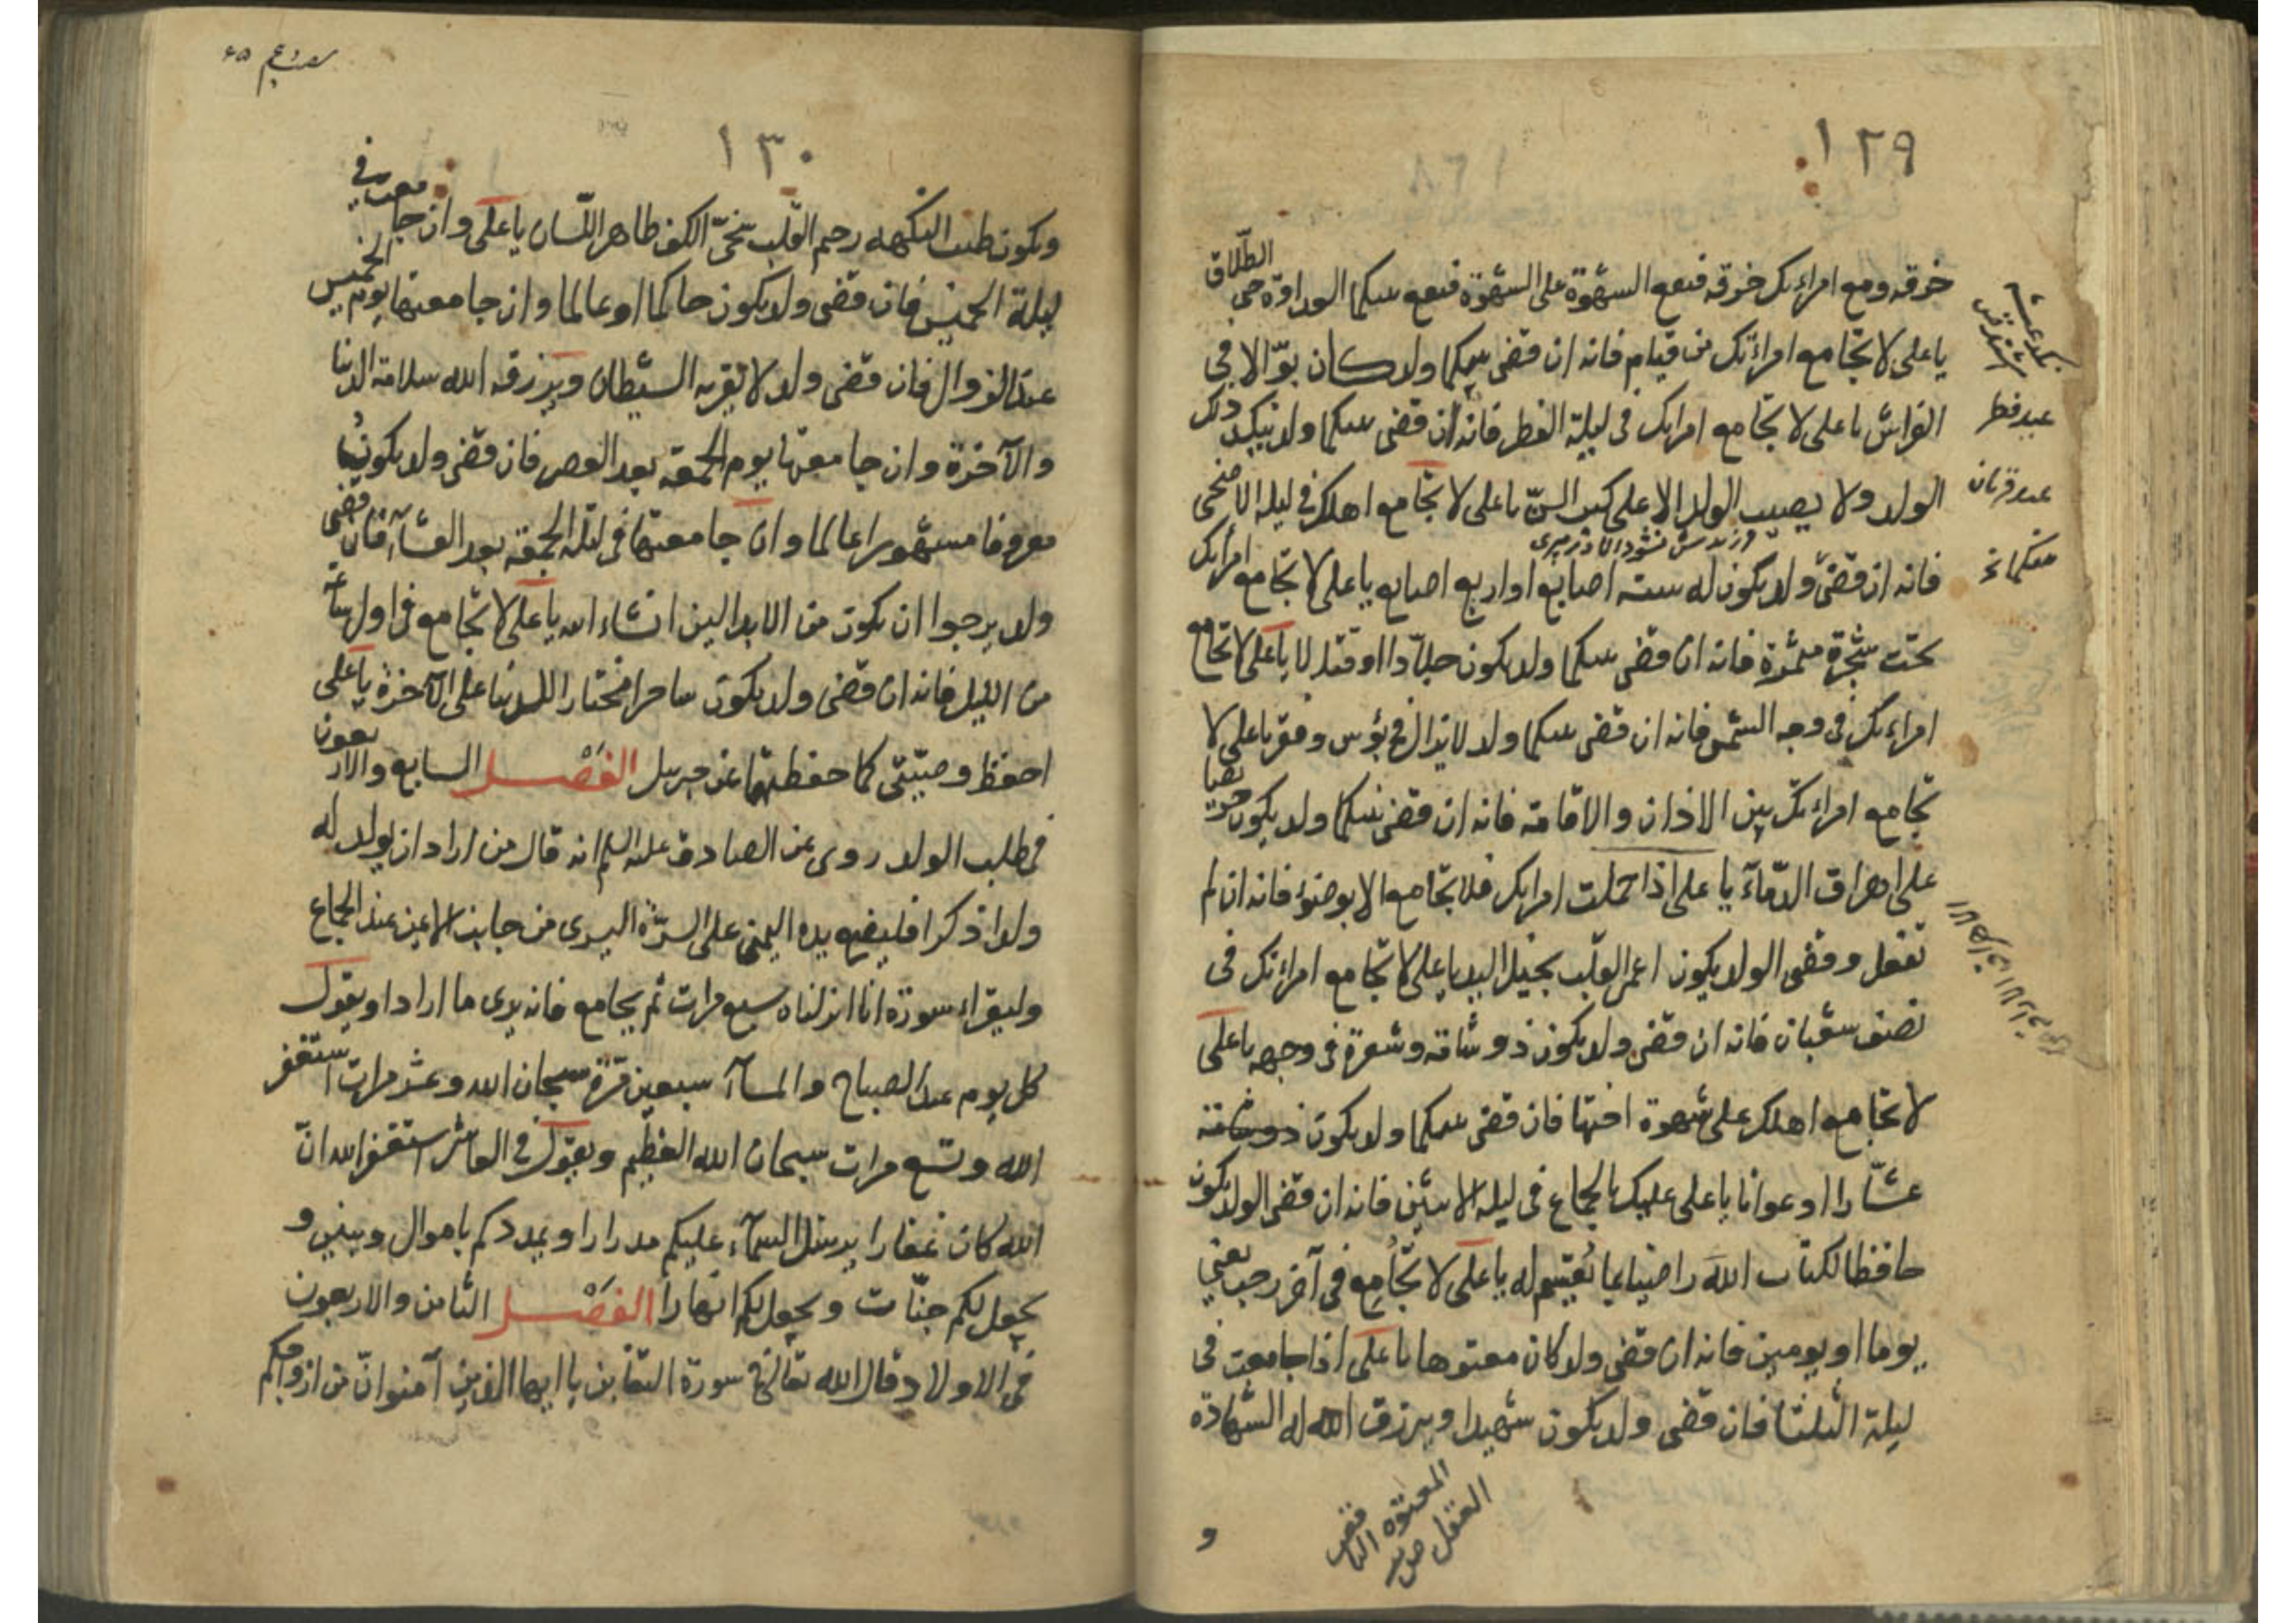 ١٢٩
خرقه ومع امراءتك خرقه فيقع الشهوة على الشهوة فيقع بينكما العداوة حتى الطلاق
يا على لا تجامع امراءتك من قيام فانه ان قضى بينكما ولد كان بوّالا فى
الفراش يا على لا تجامع امراتك فى ليلة الفطر فانه ان قضى بينكما ولد ذلك
الولد ولا يصيب الولد الا على كبر السنّ يا على لا تجامع اهلك فى ليلة الاضحى
فانه ان قضى ولد يكون له ستة اصابع او اربع اصابع يا على لا تجامع امراتك
تحت شجرة مثمرة فانه ان قضى بينكما ولد يكون جلّادا او قتالا يا على لا تجامع
امراءتك فى وجه الشمس فانه ان قضى بينكما ولد لا يزال فى بؤس وفقر يا على لا
تجامع امراءتك بين الاذان والاقامة فانه ان قضى بينكما ولد يكون حريصا
على اهراق الدّماء يا على اذا حملت امراتك فلا تجامع الا بوضوء فانه ان لم
تفعل وقضى الولد يكون اعمى القلب بخيل اليد يا على لا تجامع امراءتك فى
نصف شعبان فانه ان قضى ولد يكون ذو شامة وشعرة فى وجهه يا على
لا تجامع اهلك على شهوة اختها فان قضى بينكما ولد يكون
عشّارا او عوانا يا على عليك بالجماع فى ليلة الاثنين فانه ان قضى الولد يكون
حافظا لكتاب الله راضيا بما يقسم له يا على لا تجامع فى آخر رجب يعنى
يوما او يومين فانه ان قضى ولد كان معتوها يا على اذا جامعت فى
ليلة الثلثا فان قضى ولد يكون شهيدا ويرزق الله له الشهادة
عيد فطر
عيد قربان
المعتوه الناقص
العقل
و
١٣٠
ويكون طيب النكهه رحيم القلب سخىّ الكف طاهر اللسان يا على وان جامعت فى
ليلة الخميس فان قضى ولد يكون حاكما او عالما وان جامعتها يوم الخميس
عند الزوال فان قضى ولد لا يقربه الشيطان ويرزقه الله سلامة الدنيا
والآخرة وان جامعتها يوم الجمعة بعد العصر فان قضى ولد يكون
معروفا مشهورا عالما وان جامعتها فى ليلة الجمعة بعد العشاء فان قضى
ولد يرجوا ان يكون من الابدالين انشاء الله يا على لا تجامع فى اول ساعة
من الليل فانه ان قضى ولد يكون ساحرا مختارا للدنيا على الآخرة يا على
احفظ وصيّتى كما حفظتها عن جبرئيل الفَصْل السابع والاربعون
فى طلب الولد روى عن الصادق عليه السلم انه قال من اراد ان يولد له
ولدا ذكرا فليضع يده اليمنى على السرّة اليسرى من جانب الايمن عند الجماع
وليقراء سورة انا انزلناه سبع مرات ثم يجامع فانه يرى ما اراد او يقول
كل يوم عند الصباح والمساء سبعين مرّة سبحان الله وعشر مرات استغفر
الله وتسع مرات سبحان الله العظيم ويقول فى العاشر استغفر الله انّ
الله كان غفارا يرسل السماء عليكم مدرارا ويمددكم باموال وبنين و
يجعل لكم جنّات ويجعل لكم انهارا الفَصْل الثامن والاربعون
فى الاولاد قال الله تعالى فى سورة التغابن يا ايها الذين آمنوا انّ من ازواجكم